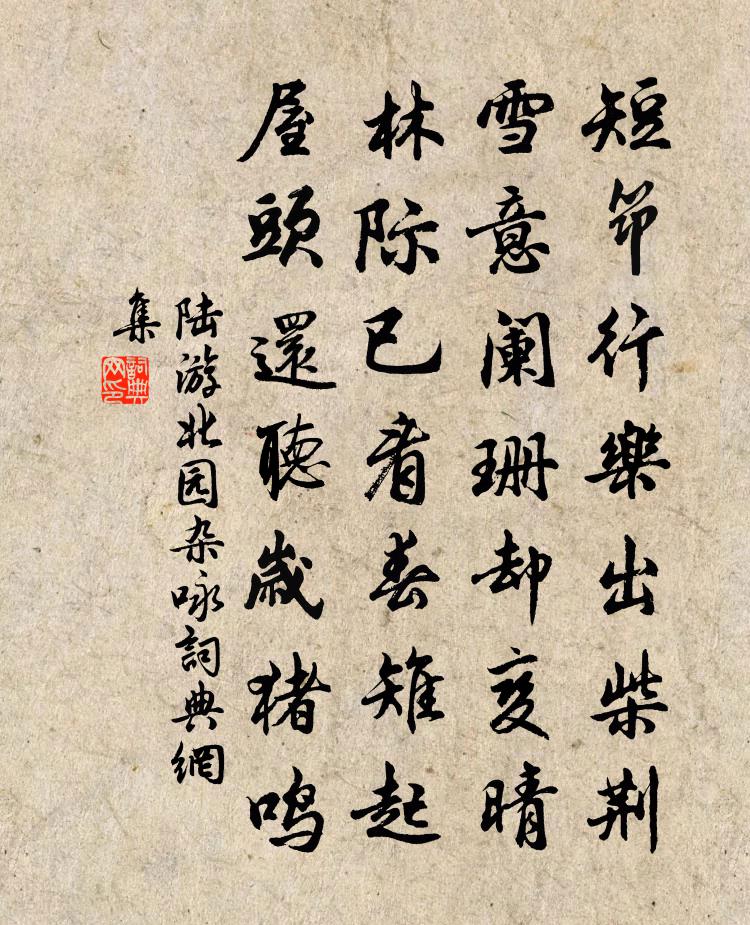 短筇行樂出柴荆
雪意阑珊却变晴
林际已看春雉起
屋頭還聽歲猪鸣
陆游北园杂咏詞典網
集
詞典网印